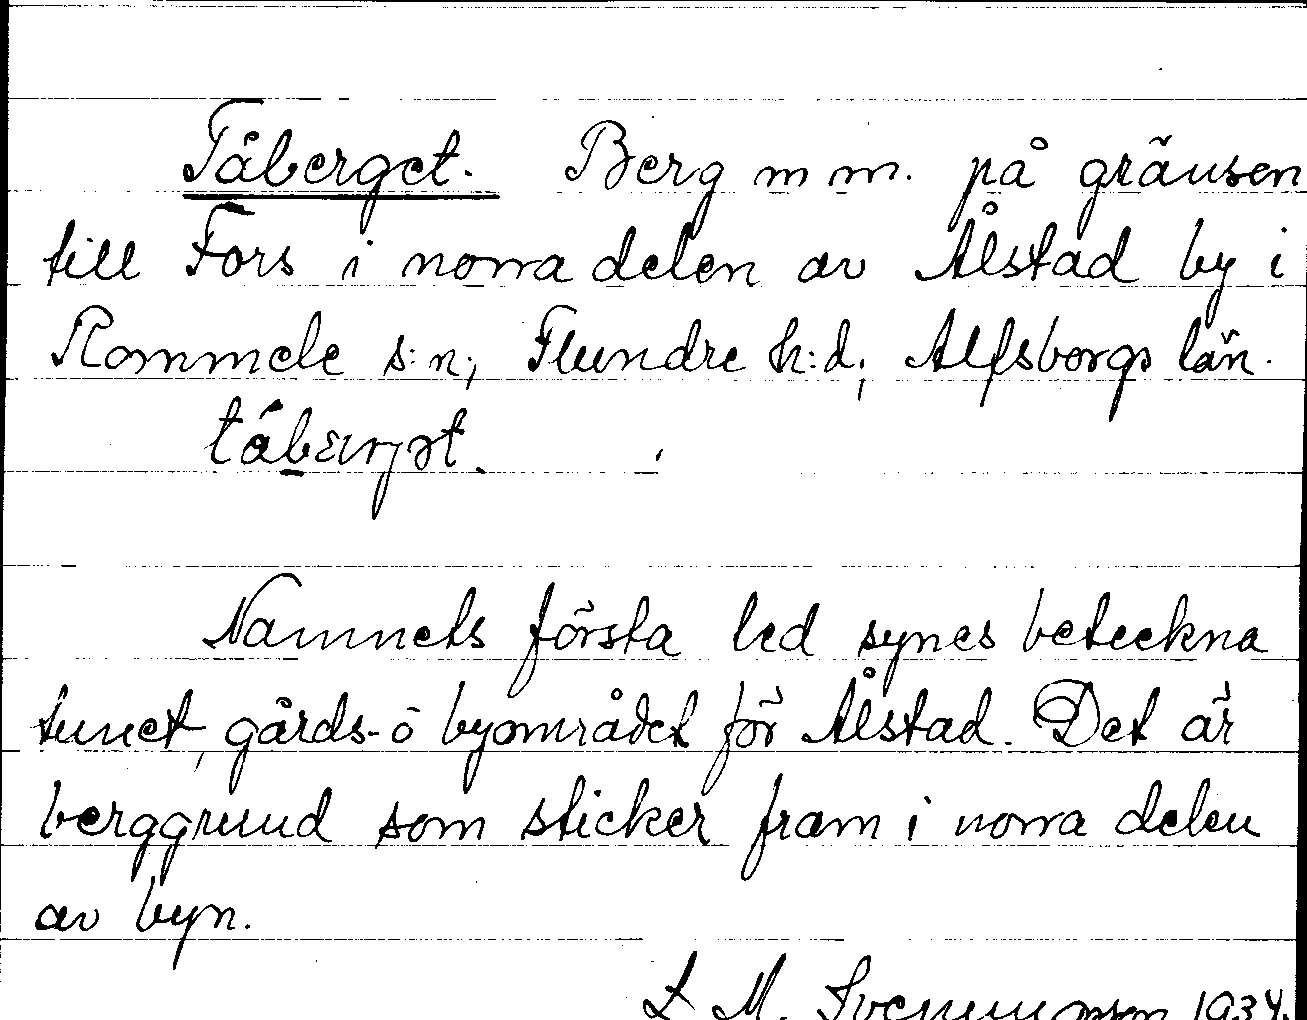 Tåberget. Berg m m. på gränsen
till Fors i norra delen av Ålstad by i
Rommele s:n; Flundre h:d; Älfsborgs län.
Namnets första led synes beteckna
tunet, gårds- o byområdet för Ålstad. Det är
berggrund som sticker fram i norra delen
av byn.
M. 1934.